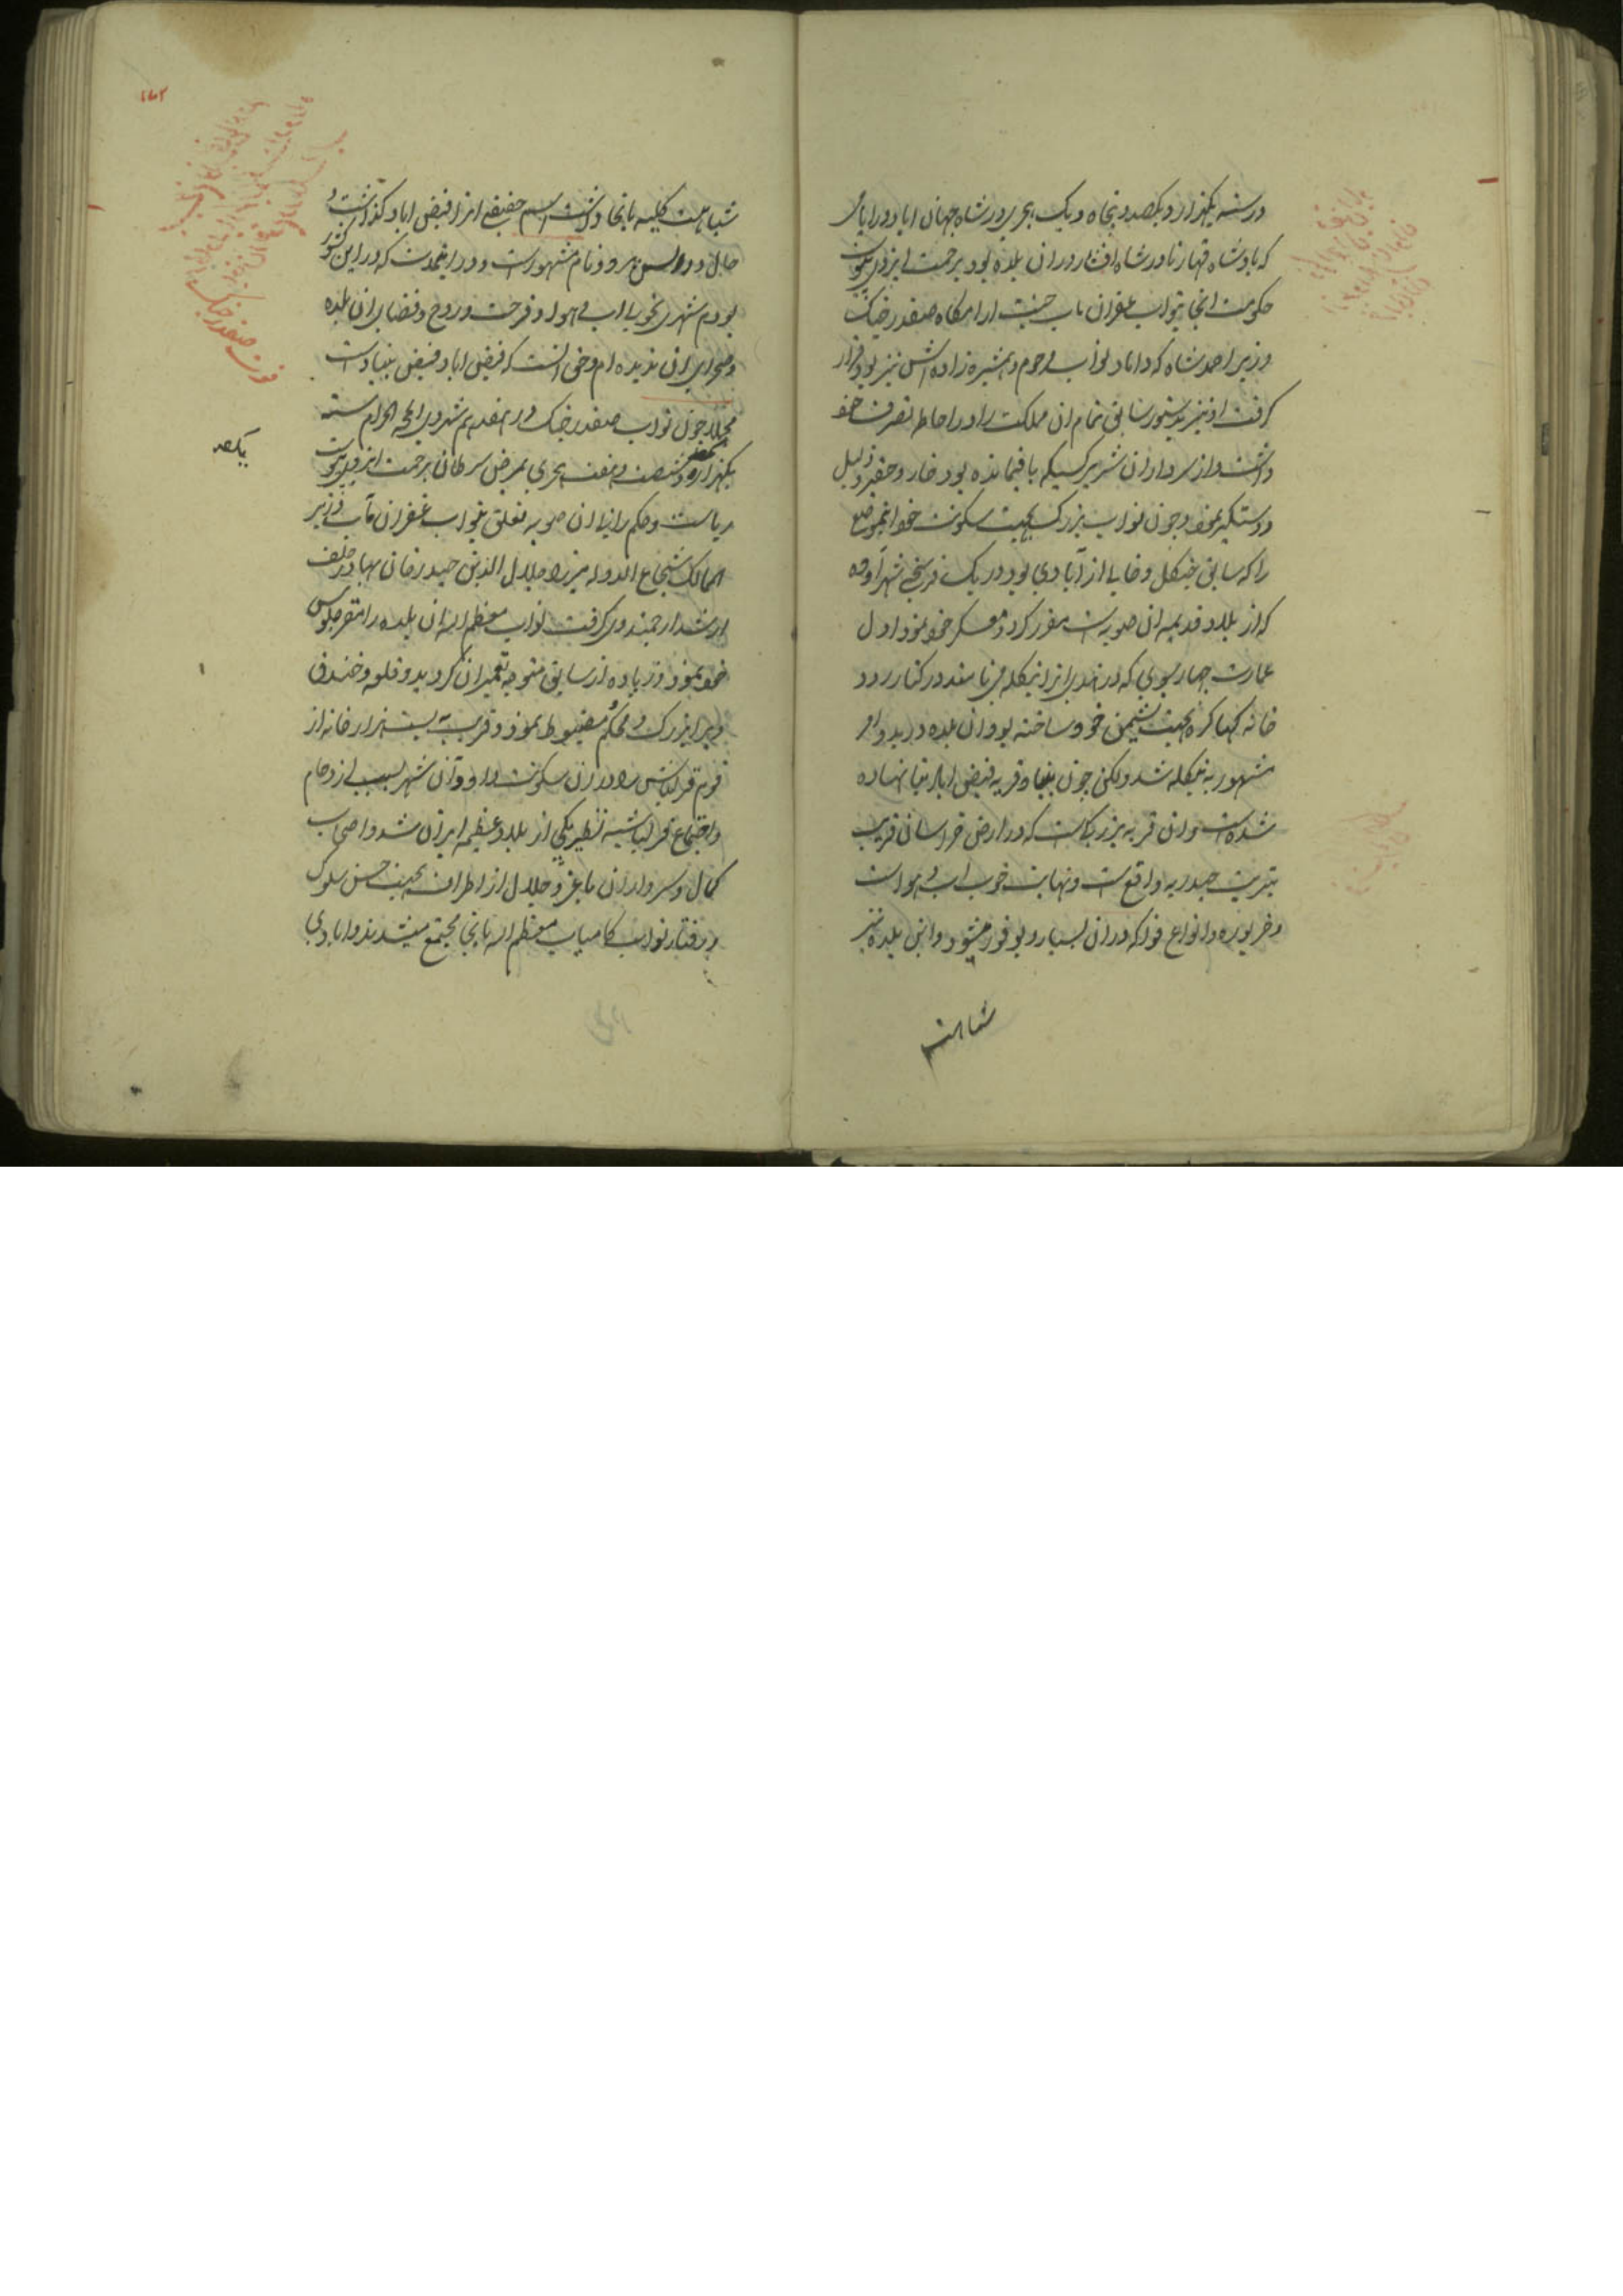 در سنه یکهزار و یکصد و پنجاه و یک هجری در شاه جهان اباد در ایامی
که بادشاه قهار نادر شاه افشار در ان بلده بود برحمت ایزدی پیوست
حکومت انجا بنواب غفران ماب جنت ارامگاه صفدر جنگ
وزیر احمد شاه که داماد نواب مرحوم و همشیره زاده اش نیز بود قرار
گرفت او نیز بدستور سابق تمام ان مملکت را در احاطه تصرف خود
داشت و از سرداران شریر کسیکه باقیمانده بود خار و حقیر و ذلیل
و دستگیر نمود و چون نواب بزرگ بجهت سکونت خود انموضع
را که سابق جنگل و خالی از آبادی بود در یک فرسخی شهر آوده
که از بلاد قدیمه ان صوبه است مقرر کرد و معسکر خود نمود اول
عمارت چهار سوی که در هندی انرا بنگله می نامند در کنار رود
خانه کهاکره بجهت نشیمن خود ساخته بود ان بلده در بدو امر
مشهور به بنگله شد ولکن چون بنیاد قریه فیض اباد بنا نهاده
شده است و ان قریه بزرگیست که در ارض خراسان قریب
بتربت حیدریه واقع است و نهایت خوب اب و هواست
و خربوزه و انواع فواکه در ان بسیار و بوفور میشود و این بلده نیز
شباهت
شباهت کلیه بانجا داشت اسم حقیقی انرا فیض اباد گذاشت و
حال در السن بهر دو نام مشهور است و در اینمدت که در این کشور
بودم شهری بخوبی اب و هوا و فرحت و روح و فضای ان بلده
و صحرای ان ندیده ام و حق انست که فیض اباد فیض بنیاد است
مجملا چون نواب صفدر جنگ در هفدهم شهر ذی الحجه الحرام سنه
یکهزار و شصت و هفت هجری بمرض سرطان برحمت ایزدی پیوست
یکصد
ریاست و حکم رانی ان صوبه تعلق بنواب غفران مآب وزیر
الممالک شجاع الدوله میرزا جلال الدین حیدر خان بهادر خلف
ارشد ارجمند وی گرفت نواب معظم الیه ان بلده را مقر جلوس
خود نمود و زیاده از سابق متوجه تعمیر ان گردید و قلعه و خندق
ویرا بزرگ و محکم و مضبوط نمود و قریب به بیست هزار خانه از
قوم قزلباش را در ان سکونت داد و آن شهر بسبب ازدحام
و اجتماع قزلباشیه نظیر یکی از بلاد عظیمه ایران شد و اصحاب
کمال و سرداران با عز و جلال از اطراف بجهت حسن سلوک
و رفتار نواب کامیاب معظم الیه بانجا مجتمع میشدند و ابادی
فوت صفدر جنگ